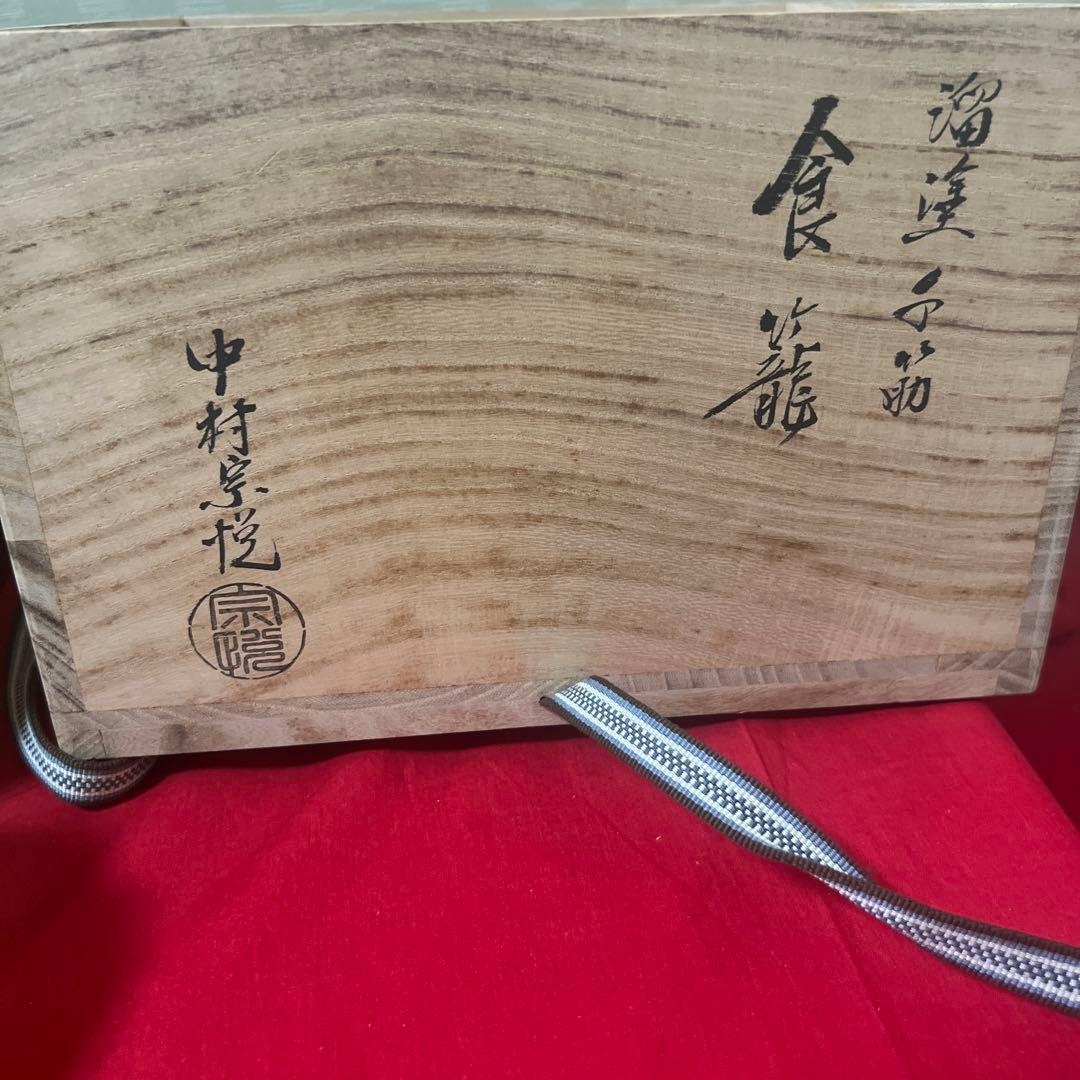 溜塗千筋
食籠
中村宗悦
宗悦